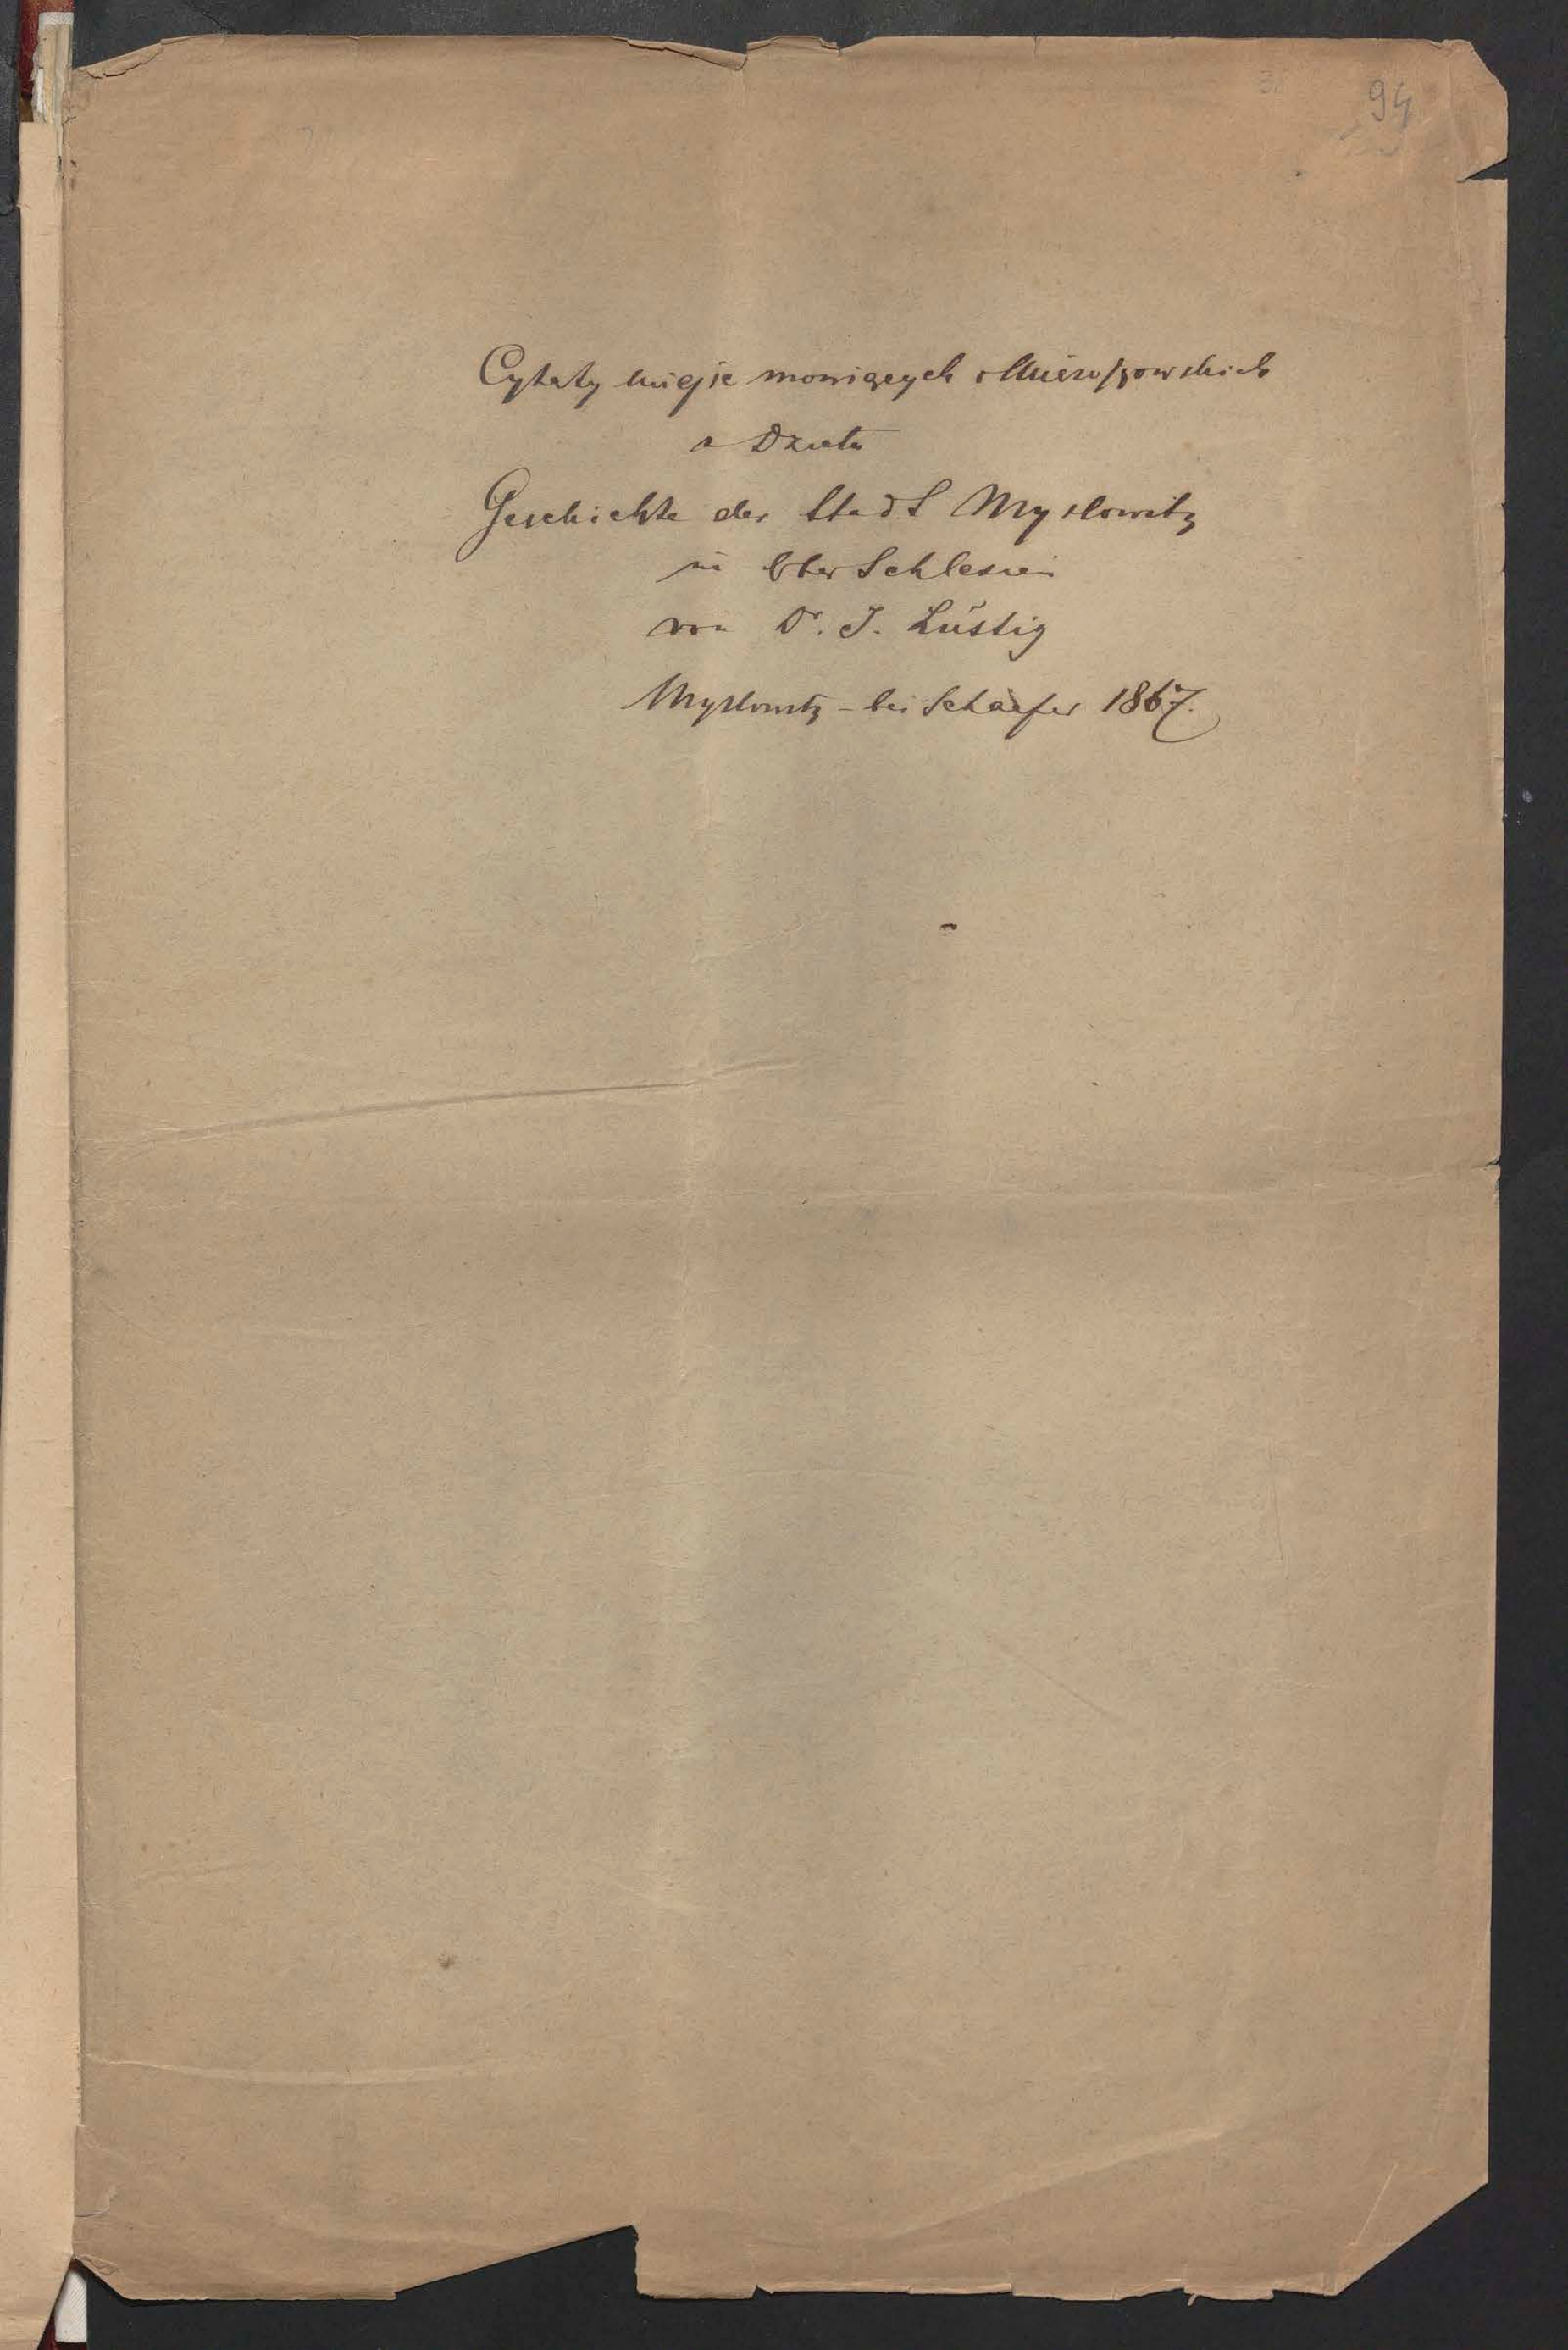 94
Cytaty miejsc mowiących o Mieroszowskich
z Dzieła
Geschichte der Stadt Myslowitz
in Ober Schlesien
von Dr. J. Lustig
Myslowitz - bei Schaefer 1867.